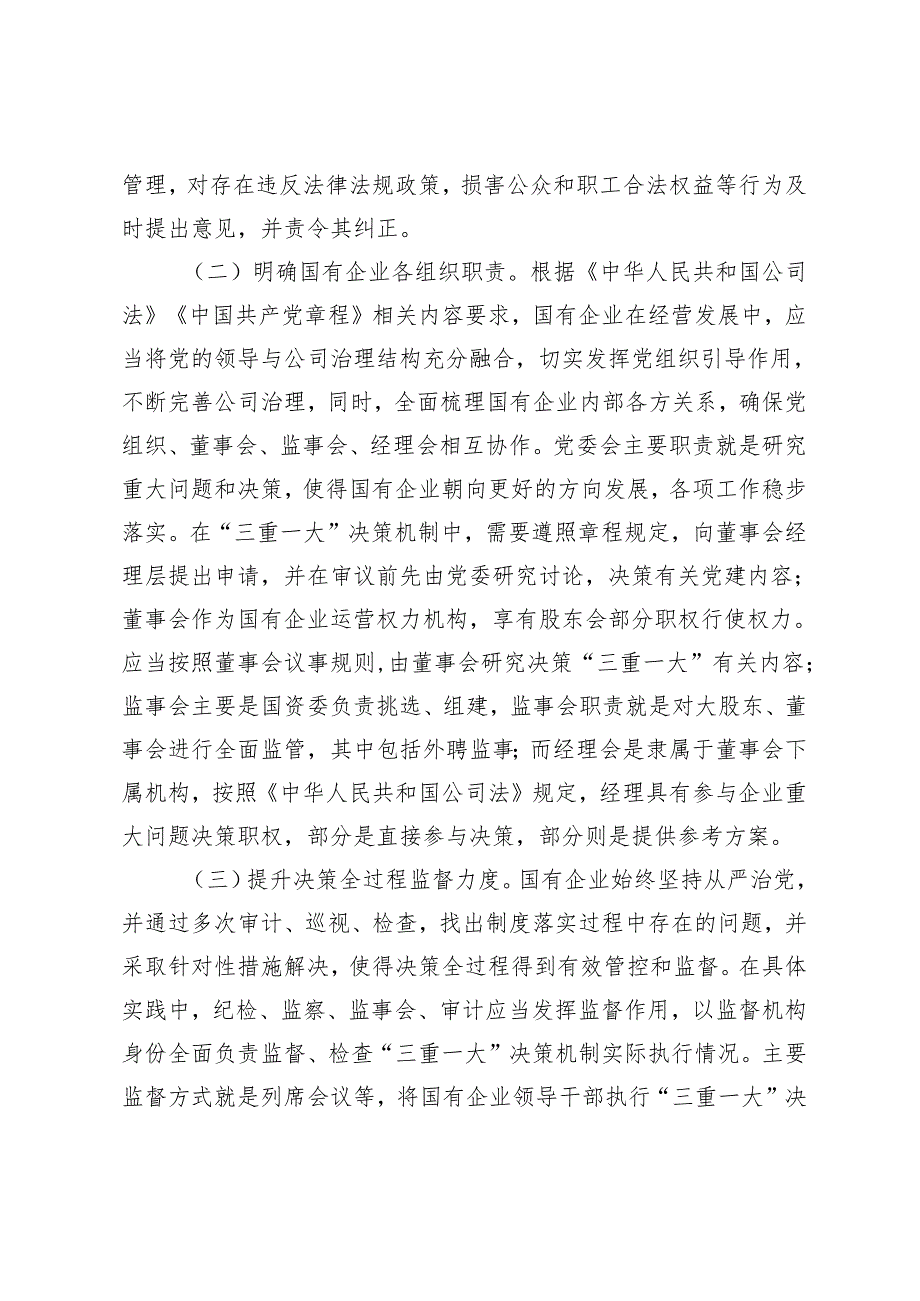 管理，对存在违反法律法规政策，损害公众和职工合法权益等行为及
时提出意见，并责令其纠正。
（二）明确国有企业各组织职责。根据《中华人民共和国公司
法》《中国共产党章程》相关内容要求，国有企业在经营发展中，应
当将党的领导与公司治理结构充分融合，切实发挥党组织引导作用，
不断完善公司治理，同时，全面梳理国有企业内部各方关系，确保党
组织、董事会、监事会、经理会相互协作。党委会主要职责就是研究
重大问题和决策，使得国有企业朝向更好的方向发展，各项工作稳步
落实。在“三重一大”决策机制中，需要遵照章程规定，向董事会经
理层提出申请，并在审议前先由党委研究讨论，决策有关党建内容；
董事会作为国有企业运营权力机构，享有股东会部分职权行使权力。
应当按照董事会议事规则,由董事会研究决策“三重一大”有关内容；
监事会主要是国资委负责挑选、组建，监事会职责就是对大股东、董
事会进行全面监管，其中包括外聘监事；而经理会是隶属于董事会下
属机构，按照《中华人民共和国公司法》规定，经理具有参与企业重
大问题决策职权，部分是直接参与决策，部分则是提供参考方案。
（三）提升决策全过程监督力度。国有企业始终坚持从严治党，
并通过多次审计、巡视、检查，找出制度落实过程中存在的问题，并
采取针对性措施解决，使得决策全过程得到有效管控和监督。在具体
实践中，纪检、监察、监事会、审计应当发挥监督作用，以监督机构
身份全面负责监督、检查“三重一大”决策机制实际执行情况。主要
监督方式就是列席会议等，将国有企业领导干部执行“三重一大”决